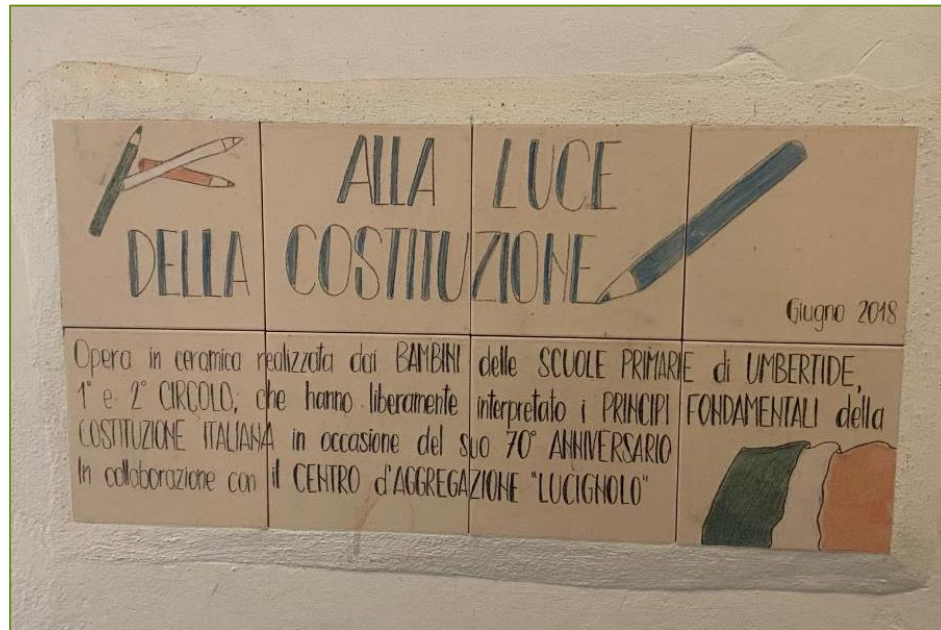 ALLA LUCE
DELLA COSTITUZIONE
Giugno 2018
Opera in ceramica realizzata dai BAMBINI delle SCUOLE PRIMARIE di UMBERTIDE,
1° e 2° CIRCOLO, che hanno liberamente interpretato i PRINCIPI FONDAMENTALI della
COSTITUZIONE ITALIANA in occasione del suo 70° ANNIVERSARIO
In collaborazione con il CENTRO d'AGGREGAZIONE "LUCIGNOLO"